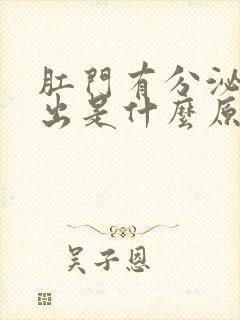 肛門有分泌
出是什麼原
吴子恩